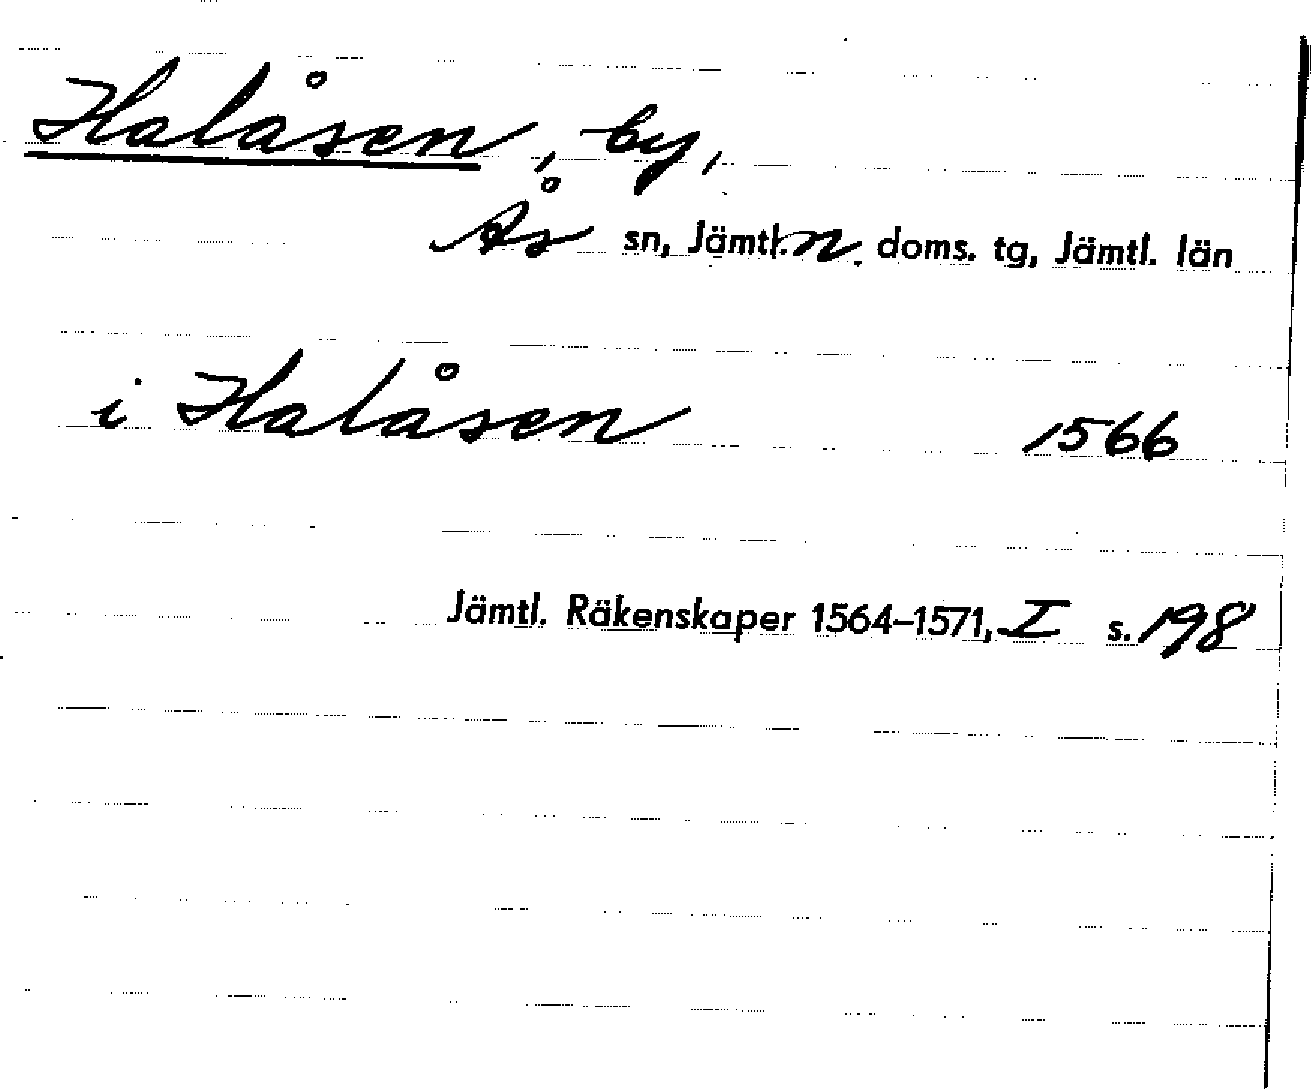 Halåsen, by,
Ås sn, Jämtl. n. doms. tg, Jämtl. län
i Halåsen 1566
Jämtl. Räkenskaper 1564–1571, I s. 198